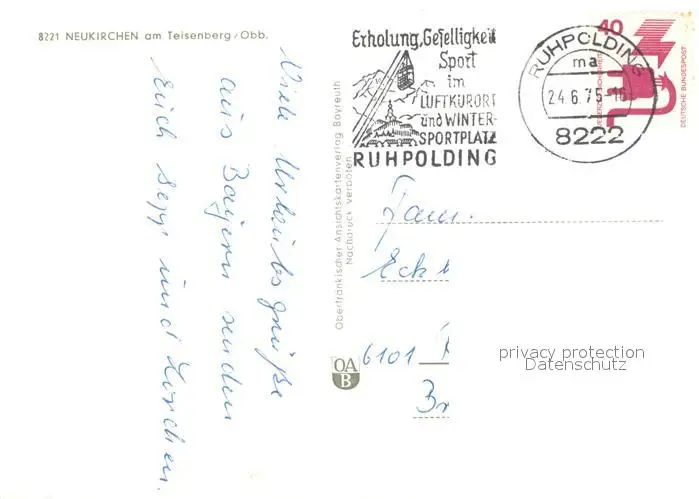 8221 NEUKIRCHEN am Teisenberg/Obb.
Viele Urlaubsgrüße
aus Bayern senden
Euch Sepp und
Oberfränkischer Ansichtskartenverlag Bayreuth
Nachdruck verboten
OA
B
Erholung, Geselligkeit
Sport
im
LUFTKURORT
und WINTER-
SPORTPLATZ
RUHPOLDING
RUHPOLDING
ma
24.6.75-16
8222
40
DEUTSCHE BUNDESPOST
Fam.
Eck
6101
Br
privacy protection
Datenschutz